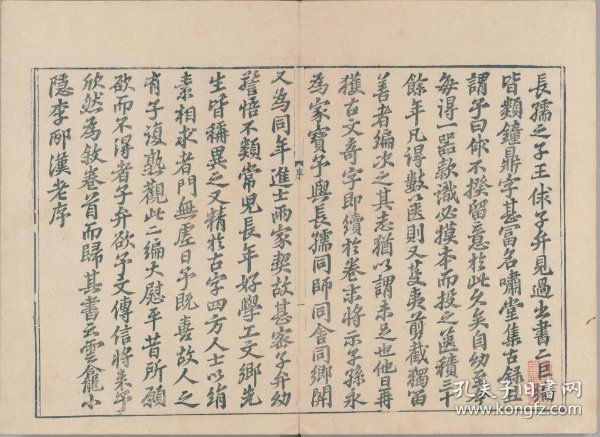 長孺之子王俅子弁見過出書二巨編
皆類鐘鼎字甚富名嘯堂集古錄且
謂予曰俅不揆留意於此久矣自幼至
每得一器款識必摸本而投之篋積三十
餘年凡得數篋則又芟夷剪截獨留
善者編次之其志猶以謂未足也他日再
獲古文奇字即續於卷末將示子孫永
為家寶予與長孺同師同舍同鄉關
又為同年進士兩家契故甚密子弁幼
警悟不類常兒長年好學工文鄉先
生皆稱異之又精於古字四方人士以絹
素相求者門無虛日予既喜故人之
有子複觀此二編大慰平昔所願
欲而不得者子弁欲予文傳信將來予
欣然為敘卷首而歸其書云雲龕小
隱李邴漢老序
序
一
孔夫子旧书网
www.kongfz.com